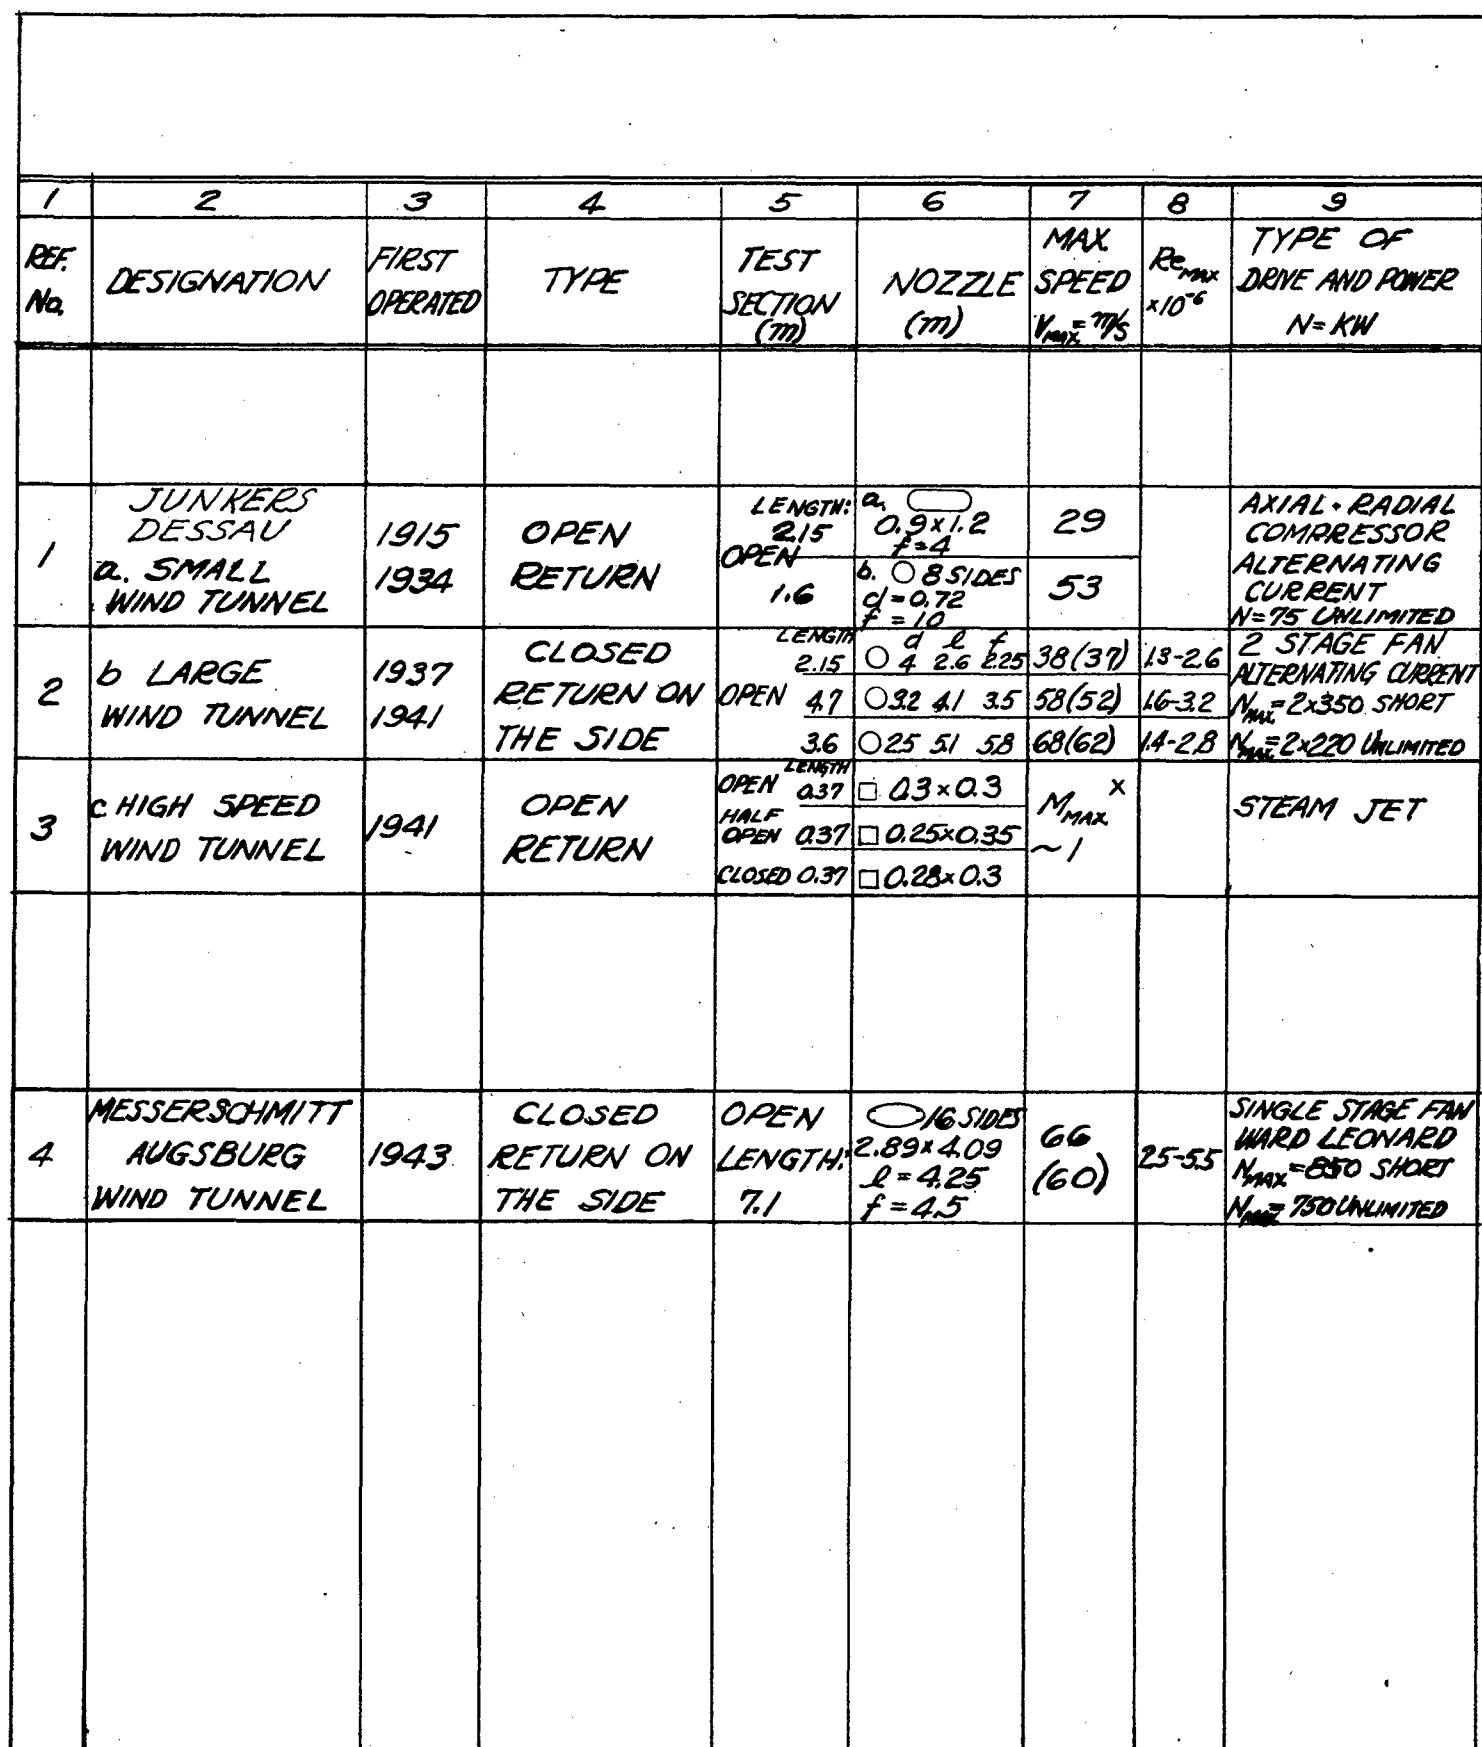 1 2 3 4 5 6 7 8 9
REF. No.
DESIGNATION
FIRST
OPERATED
TYPE
TEST
SECTION
(m)
NOZZLE
(m)
MAX.
SPEED
VMAX. = m/s
Re MAX
×10⁻⁶
TYPE OF
DRIVE AND POWER
N = KW
1
JUNKERS
DESSAU
a. SMALL
WIND TUNNEL
1915
1934
OPEN
RETURN
LENGTH:
2.15
OPEN
1.6
a.
0.9 × 1.2
f = 4
b. 8 SIDES
d = 0.72
f = 10
29
53
AXIAL - RADIAL
COMPRESSOR
ALTERNATING
CURRENT
N = 75 UNLIMITED
2
b LARGE
WIND TUNNEL
1937
1941
CLOSED
RETURN ON
THE SIDE
LENGTH
2.15
OPEN 4.7
3.6
d l f
4 2.6 2.25
3.2 4.1 3.5
2.5 5.1 5.8
38 (37)
58 (52)
68 (62)
1.3-2.6
1.6-3.2
1.4-2.8
2 STAGE FAN
ALTERNATING CURRENT
NMAX. = 2×350 SHORT
NMAX. = 2×220 UNLIMITED
3
c HIGH SPEED
WIND TUNNEL
1941
OPEN
RETURN
LENGTH
OPEN 0.37
HALF
OPEN 0.37
CLOSED 0.37
0.3 × 0.3
0.25 × 0.35
0.28 × 0.3
MMAX. x
~ 1
STEAM JET
4
MESSERSCHMITT
AUGSBURG
WIND TUNNEL
1943
CLOSED
RETURN ON
THE SIDE
OPEN
LENGTH:
7.1
16 SIDES
2.89 × 4.09
l = 4.25
f = 4.5
66
(60)
2.5-5.5
SINGLE STAGE FAN
WARD LEONARD
NMAX = 850 SHORT
NMAX = 750 UNLIMITED